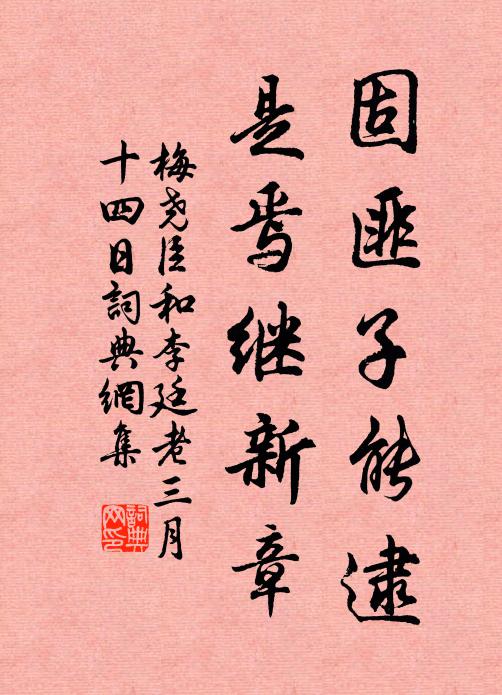 固匪子能逮
是焉继新章
梅尧臣和李廷老三月
十四日詞典網集
詞典
网印